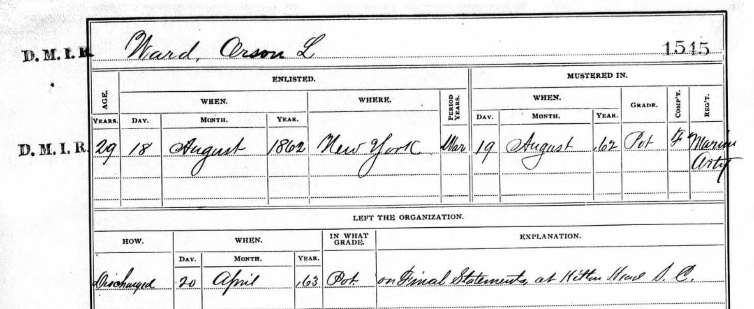 D. M. I. R. Ward, Orson L 1515
ENLISTED. MUSTERED IN.
AGE. WHEN. WHERE. PERIOD YEARS. WHEN. GRADE. COMP'T. REG'T.
YEARS. DAY. MONTH. YEAR. DAY. MONTH. YEAR.
D. M. I. R. 29 18 August 1862 New York War 19 August ,62 Pvt F Marine
Arty
LEFT THE ORGANIZATION.
HOW. WHEN. IN WHAT GRADE. EXPLANATION.
DAY. MONTH. YEAR.
Discharged 20 April ,63 Pvt on Final Statements, at Hilton Head S. C.